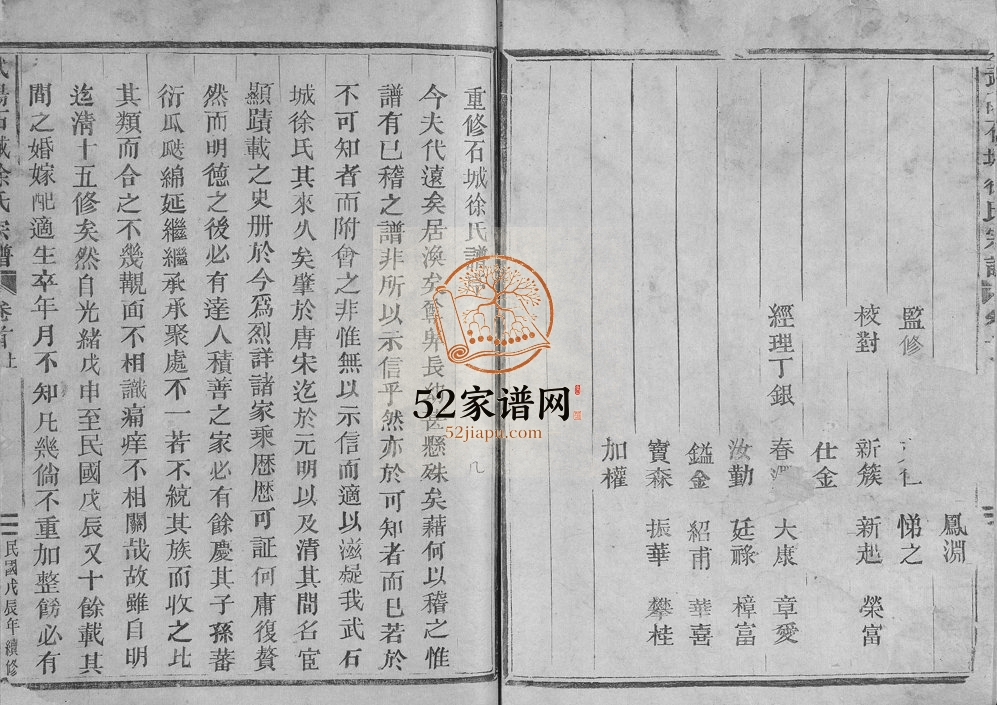 鳳淵
監修
悌之
校對
新簇 新起 榮富
仕金
經理丁銀
春 大康 章愛
汝勤 廷祿 樟富
鎰金 紹甫 華喜
寶森 振華 攀桂
加權
重修石城徐氏譜
今夫代遠矣居渙矣尊卑長幼甚懸殊矣藉何以稽之惟
譜有已稽之譜非所以示信乎然亦於可知者而已若於
不可知者而附會之非惟無以示信而適以滋疑我武石
城徐氏其來久矣肇於唐宋迄於元明以及清其間名宦
顯蹟載之史册於今爲烈詳諸家乘歷歷可証何庸復贅
然而明德之後必有達人積善之家必有餘慶其子孫蕃
衍瓜瓞綿延繼繼承承聚處不一若不統其族而收之比
其類而合之不幾覿面不相識痛痒不相關哉故雖自明
迄清十五修矣然自光緒戊申至民國戊辰又十餘載其
間之婚嫁配適生卒年月不知凡幾倘不重加整飭必有
石城徐氏宗譜 卷首上
民國戊辰年續修
52家谱网
52jiapu.com